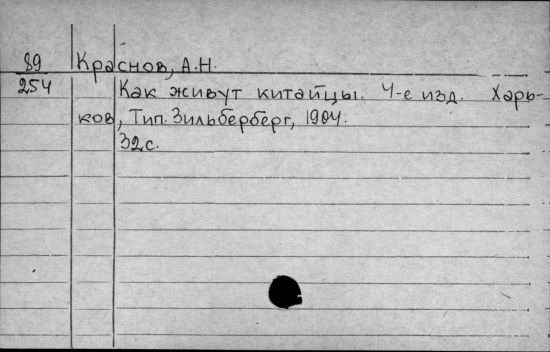 89 Краснов, А.Н.
254 Как живут китайцы. 4-е изд. Харь-
ков, Тип. Зильберберг, 1904.
32с.